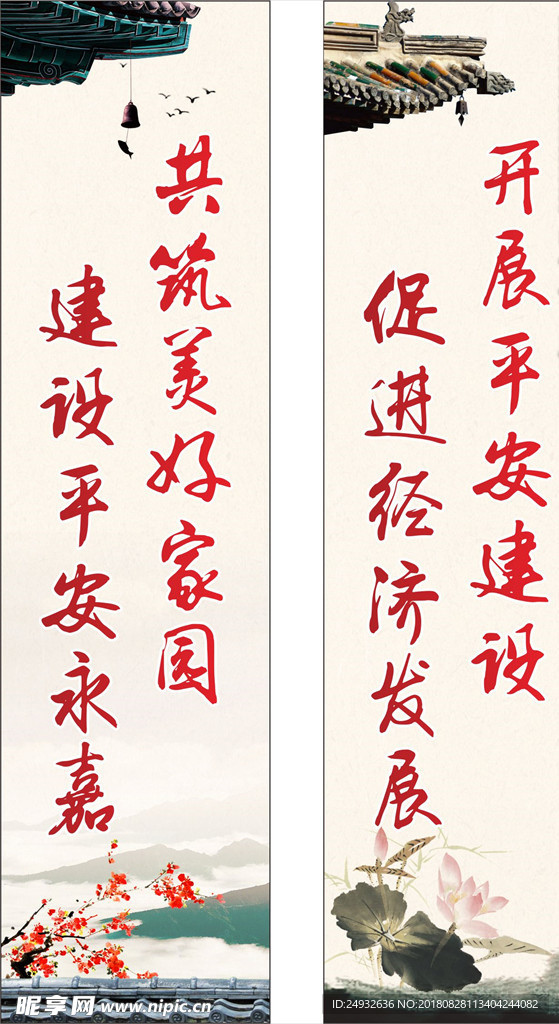 共筑美好家园
建设平安永嘉
开展平安建设
促进经济发展
昵享网 www.nipic.cn
ID:24932636 NO:20180828113404244082